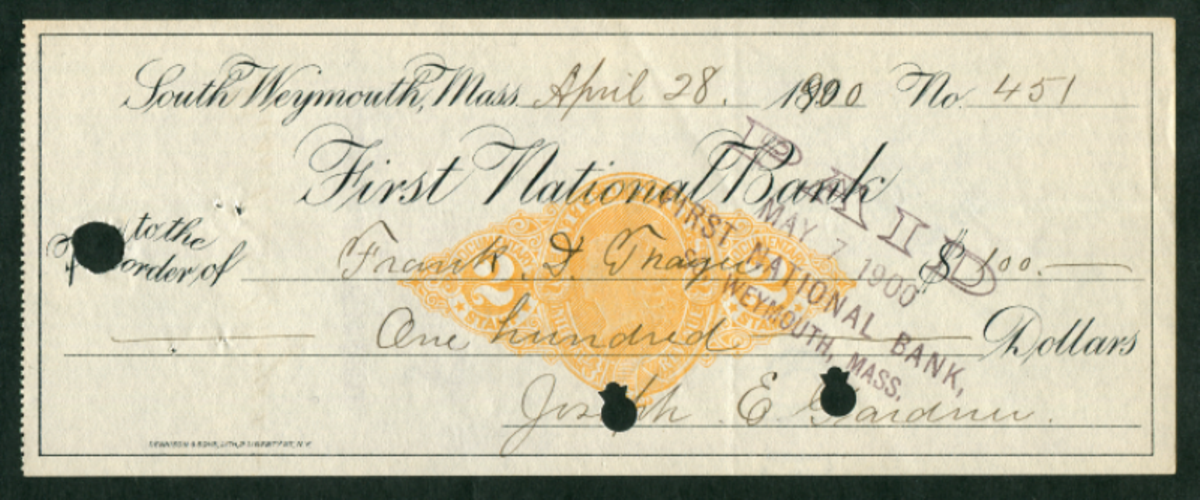 South Weymouth, Mass. April 28. 1900 No. 451
First National Bank
PAID
FIRST NATIONAL BANK,
MAY 7 1900
SO. WEYMOUTH, MASS.
to the
order of Frank. D. Thayer $100.
One hundred Dollars
Joseph E Gardner.
DOCUMENTARY
2 2
STAMP